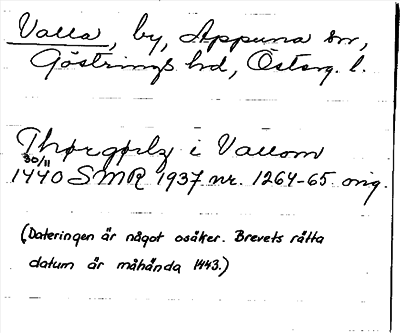 Valla, by, Appuna sn,
Göstrings hd, Österg. l.
Thørgørlz i Vallom
30/11
1440 SMR 1937 nr. 1264-65 orig.
(Dateringen är något osäker. Brevets rätta
datum är måhända 1443.)